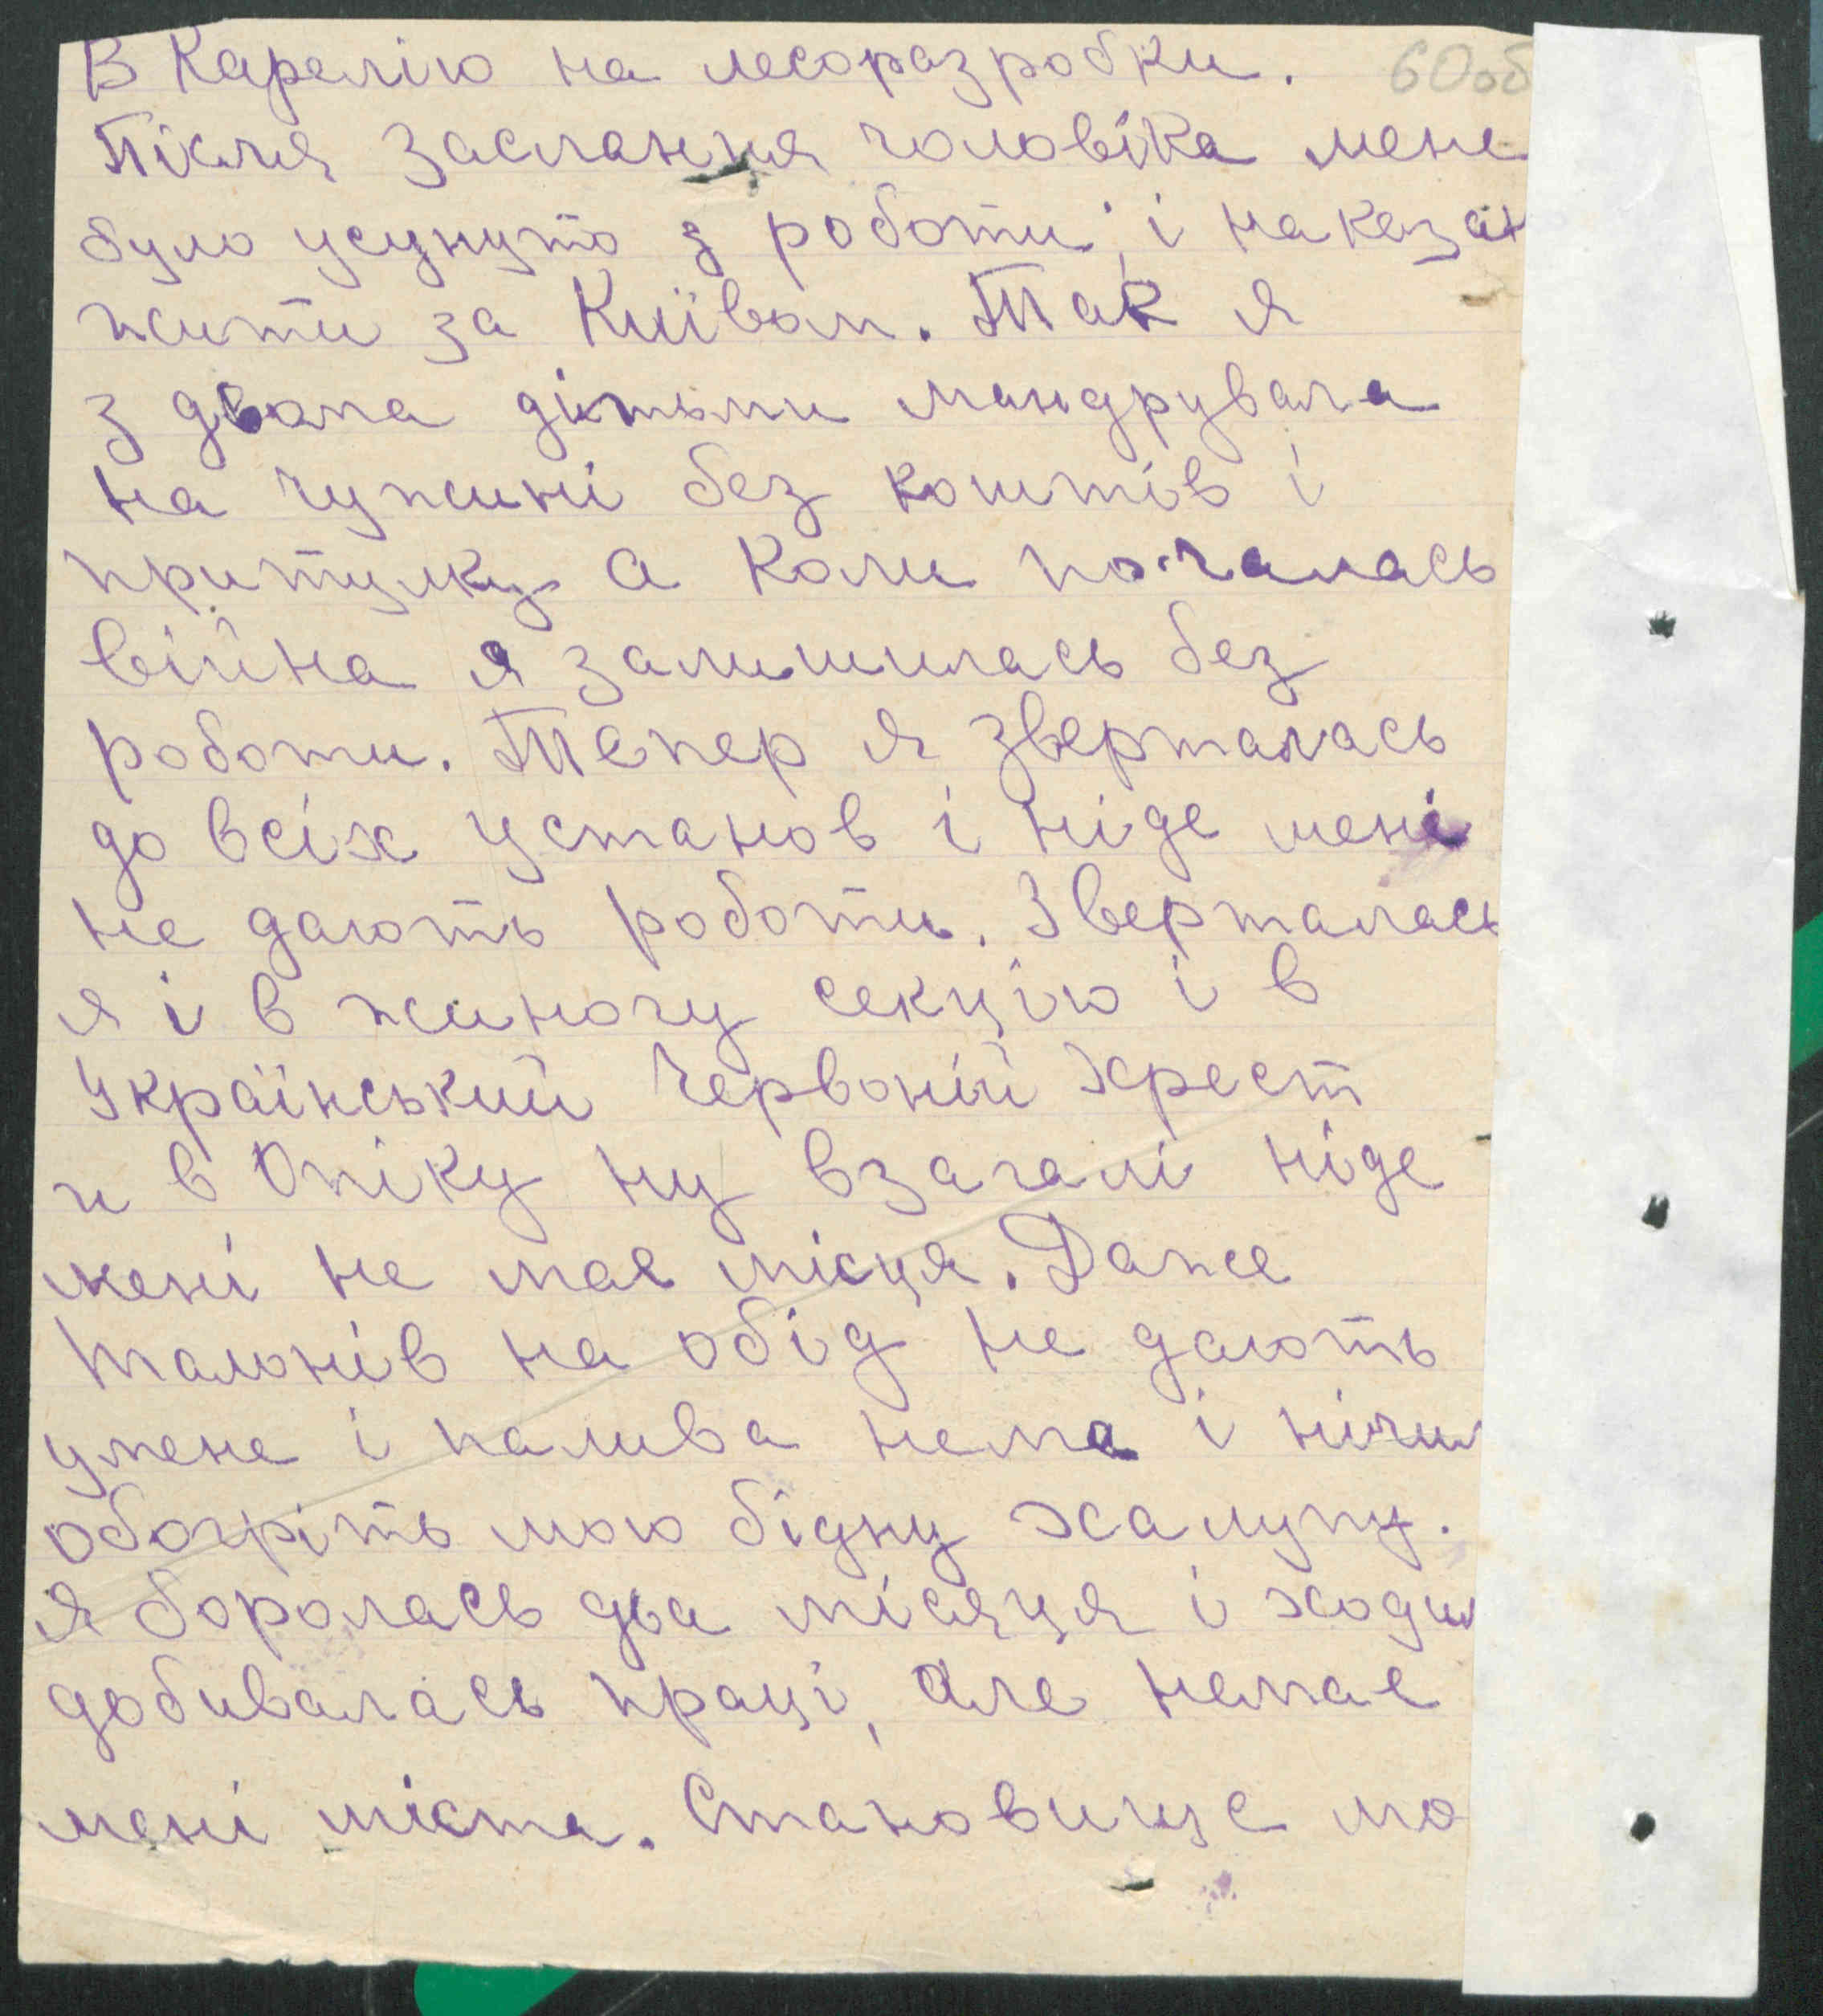 60об
В Карелію на лесоразробки.
Після заслання чоловіка мене
було усунуто з роботи і наказан
жити за Київом. Так я
з двома дітьми мандрувала
на чужині без коштів і
притулку а коли почалась
війна я залишилась без
роботи. Тепер я зверталась
до всіх установ і ніде мені
не дають роботи. Зверталась
я і в жиночу секцію і в
Український Червоній Хрест
и в Опіку ну взагалі ніде
мені не має місця. Даже
талонів на обід не дають
умене і палива нема і нічим
обогріть мою бідну халупу.
я боролась два місяця і ходил
добивалась праці, але немає
мені міста. Становище мо